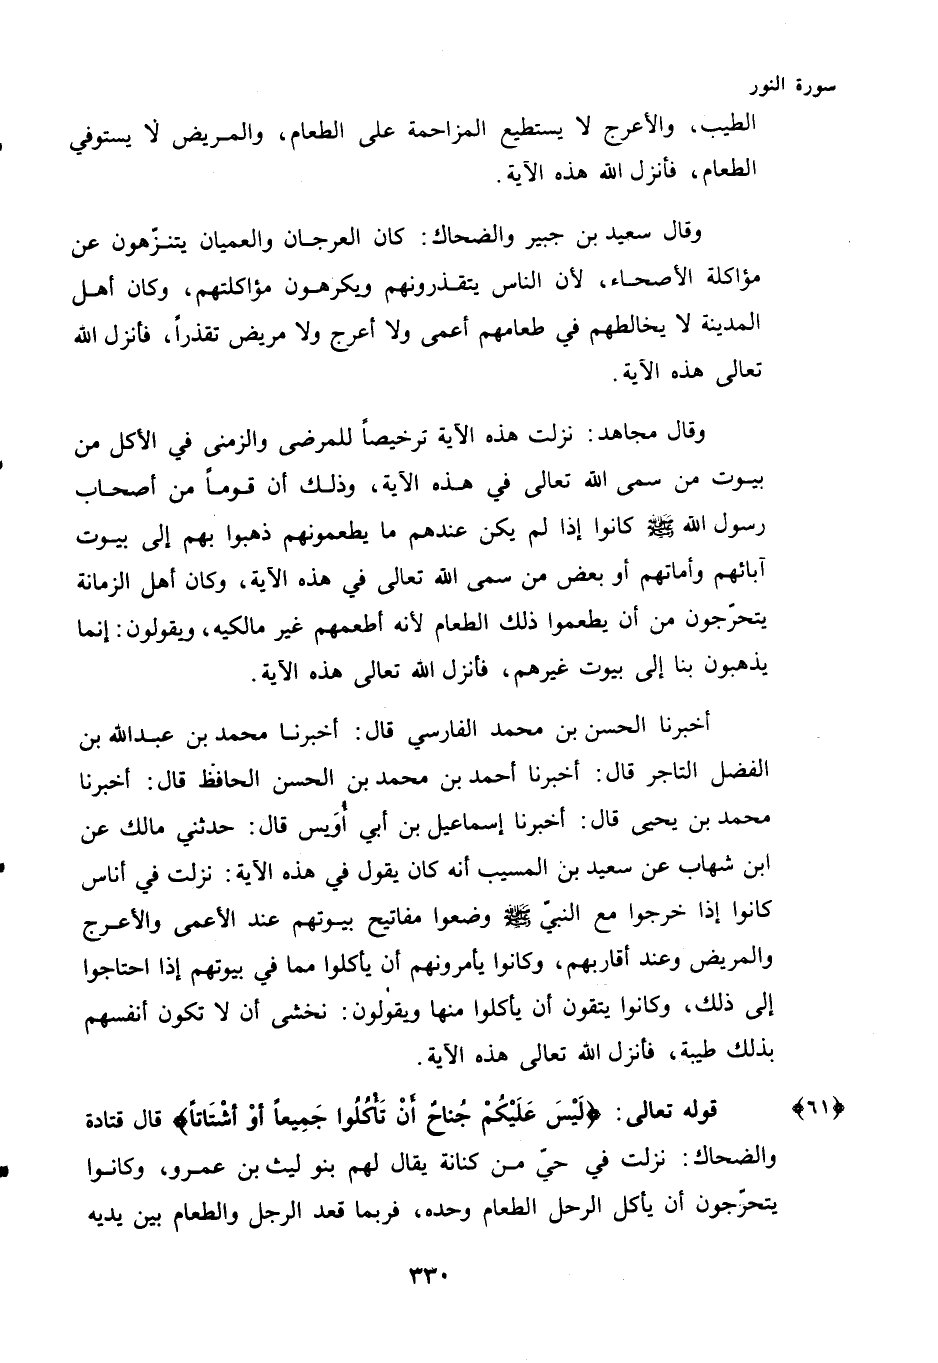 سورة النور
الطيب، والأعرج لا يستطيع المزاحمة على الطعام، والمريض لا يستوفي
الطعام، فأنزل الله هذه الآية.
وقال سعيد بن جبير والضحاك: كان العرجان والعميان يتنزّهون عن
مؤاكلة الأصحاء، لأن الناس يتقذرونهم ويكرهون مؤاكلتهم، وكان أهل
المدينة لا يخالطهم في طعامهم أعمى ولا أعرج ولا مريض تقذراً، فأنزل الله
تعالى هذه الآية.
وقال مجاهد: نزلت هذه الآية ترخيصاً للمرضى والزمنى في الأكل من
بيوت من سمى الله تعالى في هذه الآية، وذلك أن قوماً من أصحاب
رسول الله ﷺ كانوا إذا لم يكن عندهم ما يطعمونهم ذهبوا بهم إلى بيوت
آبائهم وأماتهم أو بعض من سمى الله تعالى في هذه الآية، وكان أهل الزمانة
يتحرّجون من أن يطعموا ذلك الطعام لأنه أطعمهم غير مالكيه، ويقولون: إنما
يذهبون بنا إلى بيوت غيرهم، فأنزل الله تعالى هذه الآية.
أخبرنا الحسن بن محمد الفارسي قال: أخبرنا محمد بن عبدالله بن
الفضل التاجر قال: أخبرنا أحمد بن محمد بن الحسن الحافظ قال: أخبرنا
محمد بن يحيى قال: أخبرنا إسماعيل بن أبي أُوَيس قال: حدثني مالك عن
ابن شهاب عن سعيد بن المسيب أنه كان يقول في هذه الآية: نزلت في أناس
كانوا إذا خرجوا مع النبيّ ﷺ وضعوا مفاتيح بيوتهم عند الأعمى والأعرج
والمريض وعند أقاربهم، وكانوا يأمرونهم أن يأكلوا مما في بيوتهم إذا احتاجوا
إلى ذلك، وكانوا يتقون أن يأكلوا منها ويقولون: نخشى أن لا تكون أنفسهم
بذلك طيبة، فأنزل الله تعالى هذه الآية.
﴿٦١﴾ قوله تعالى: ﴿لَيْسَ عَلَيْكُمْ جُناحٌ أَنْ تَأْكُلُوا جَمِيعاً أوْ أشْتَاتاً﴾ قال قتادة
والضحاك: نزلت في حيّ من كنانة يقال لهم بنو ليث بن عمرو، وكانوا
يتحرّجون أن يأكل الرحل الطعام وحده، فربما قعد الرجل والطعام بين يديه
٣٣٠